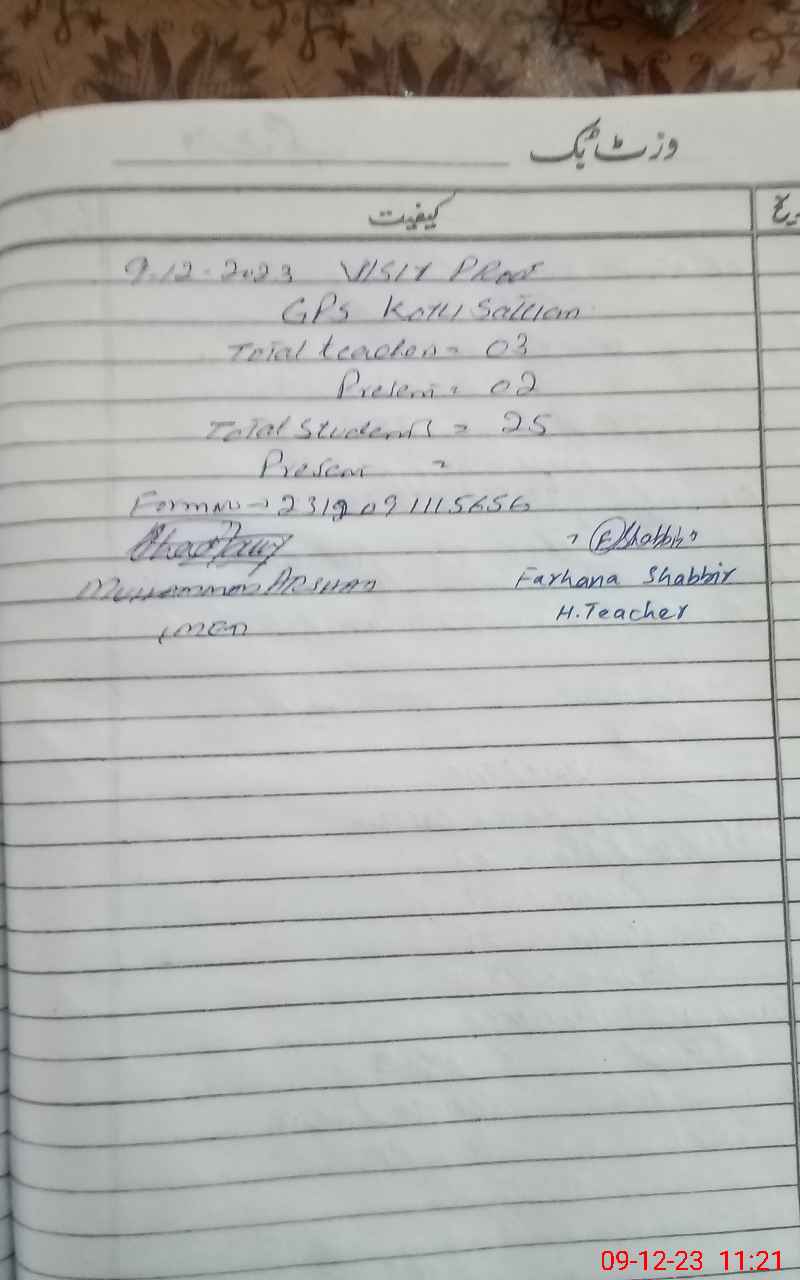 وزٹ بک
کیفیت
9.12.2023 VISIT PRoof
GPS Kotli Sattian
Total teacher = 03
Present = 02
Total Students = 25
Present =
Form No → 2312091115656
F Shabbir
Muhammad ARSHAD Farhana Shabbir
H.Teacher
09-12-23 11:21